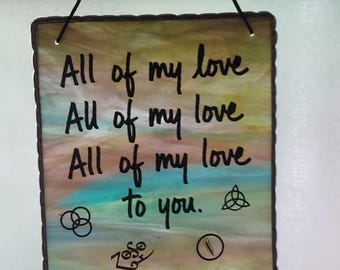 All of my love
All of my love
All of my love
to you.